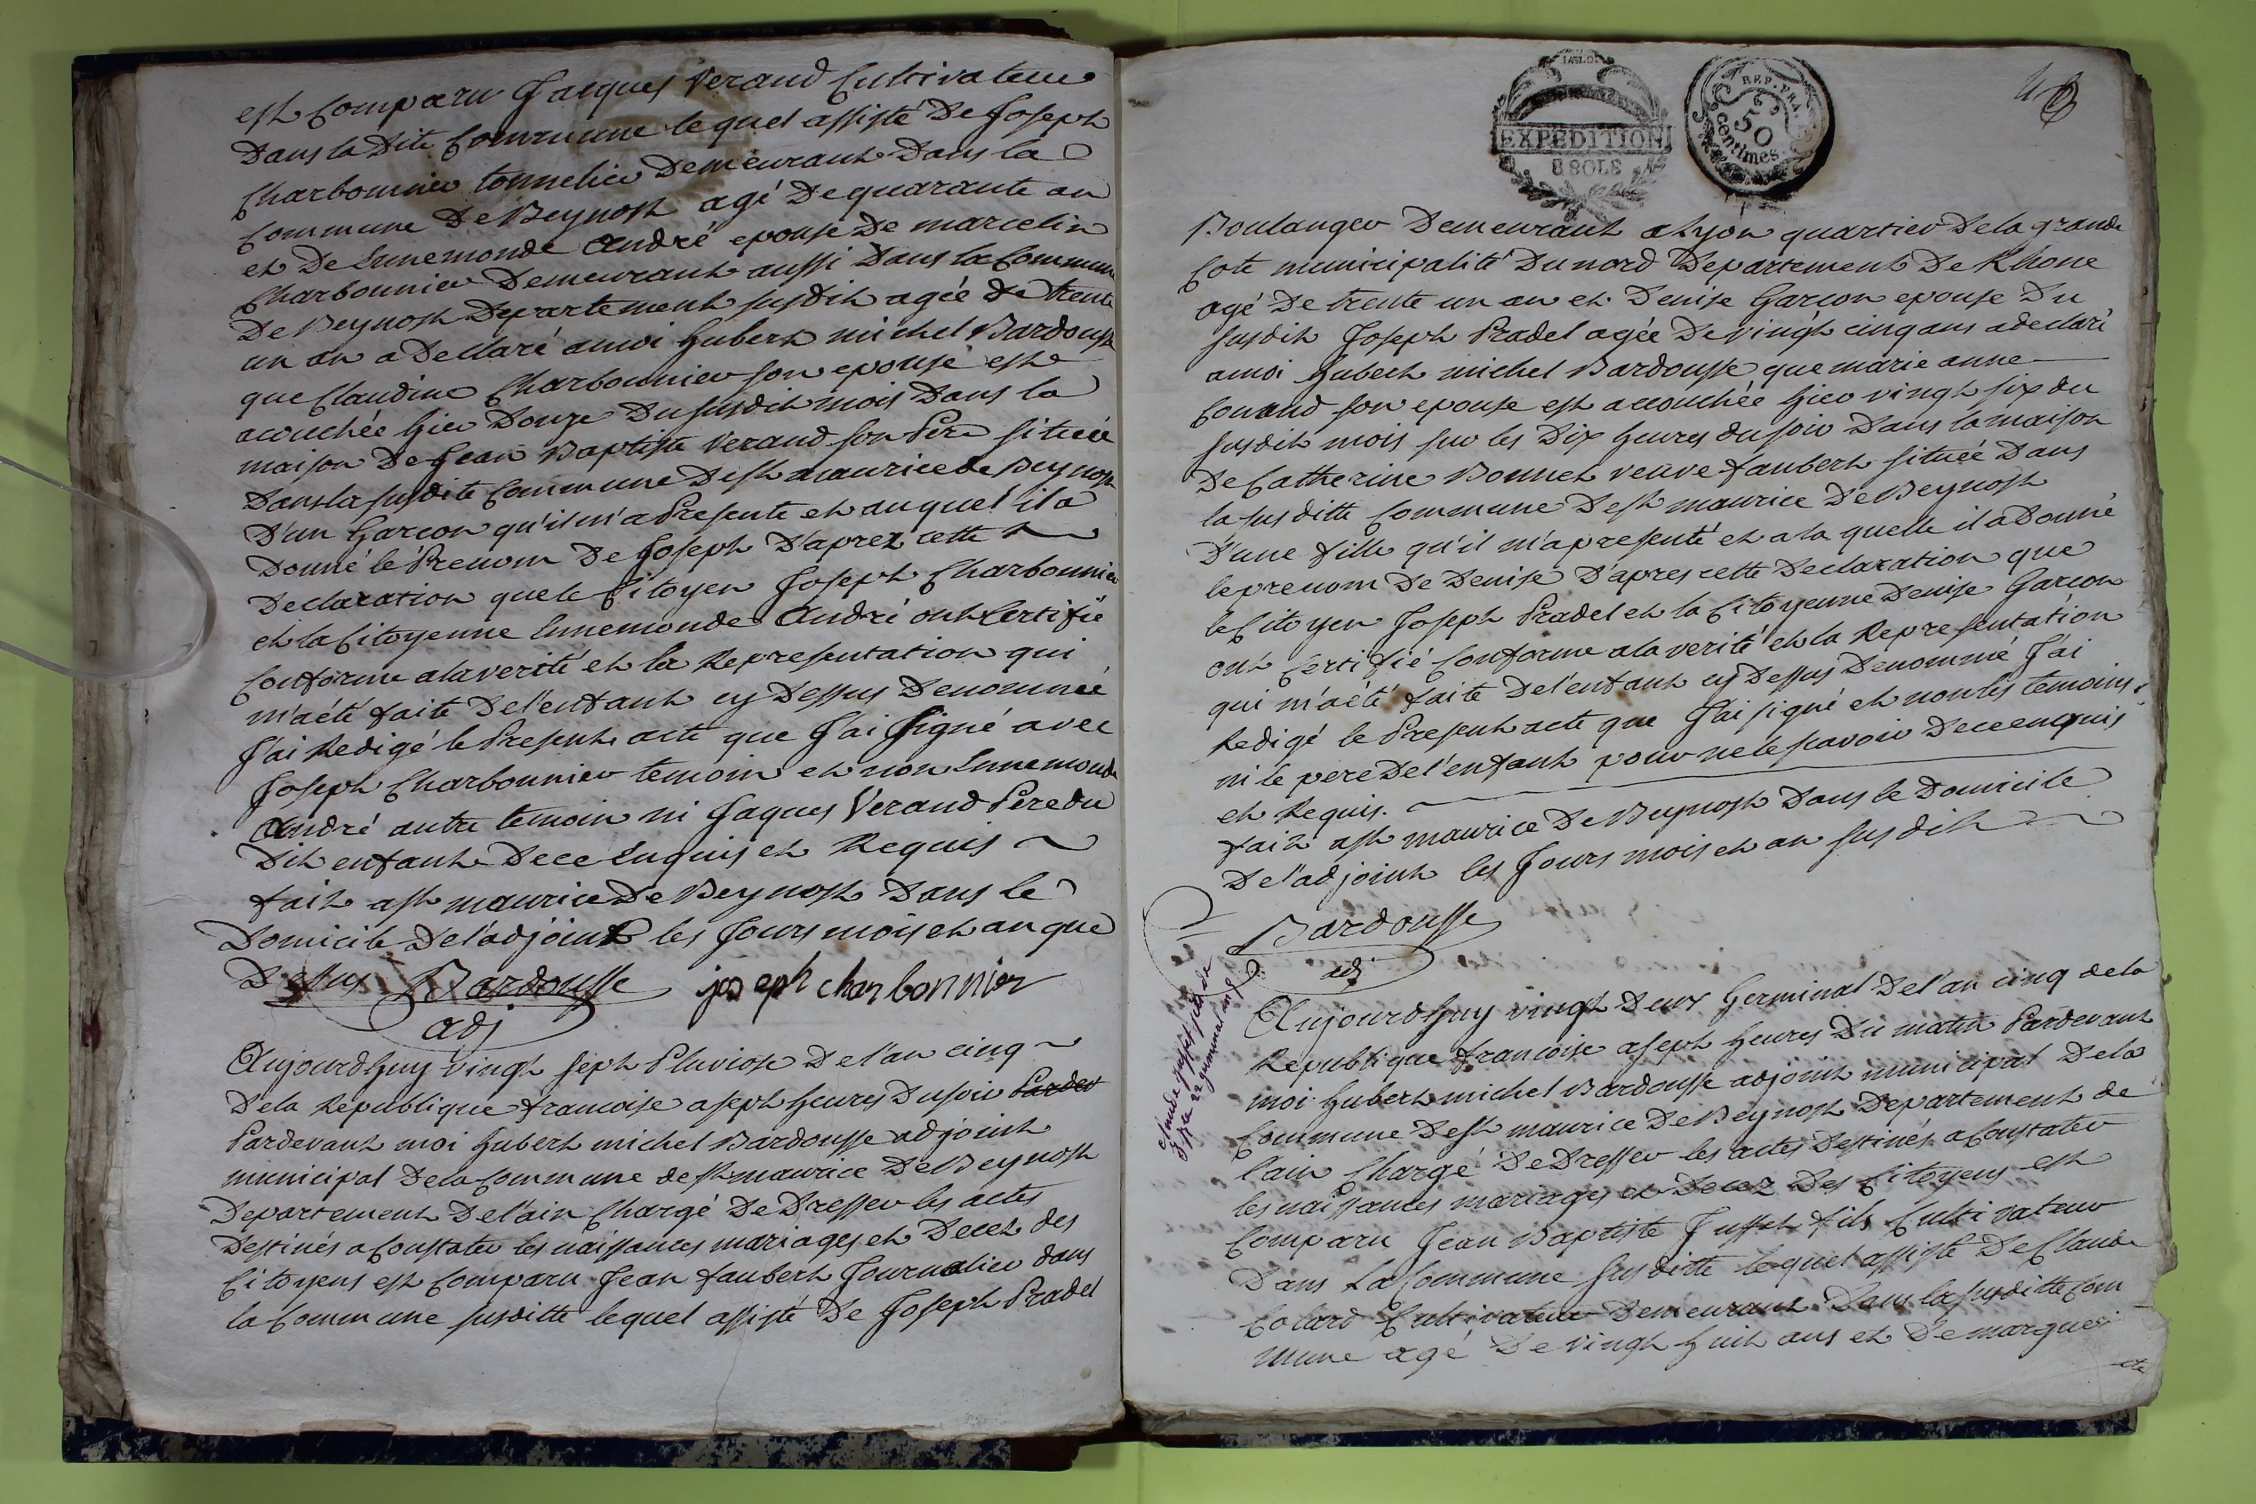 est comparu Jacques Verand Cultivateur
Dans la Dite Commune lequel assisté De Joseph
Charbonnier tonnelier Demeurant Dans la
Commune De Beynost agé De quarante an
et De Ennemonde André epouse De marcelin
Charbonnier Demeurant aussi Dans la Commune
De Beynost Departement susdit agée de trente
un an a Declaré a moi hubert michel Bardousse
que Claudine Charbonnier son epouse est
acouchée hier Douze Du susdit mois Dans la
maison De Jean Baptiste Verand son Pere située
Dans la susdite Commune De st maurice de Beynost
D'un Garcon qu'il m'a Presente et auquel il a
Donné le Prenom De Joseph D'aprez cette
Declaration que le Citoyen Joseph Charbonnier
et la Citoyenne Ennemonde André ont Certifié
Conforme a la verité et la Representation qui
m'a été faite De l'enfant cy Dessus Denommé
J'ai Redigé le Present acte que J'ai signé avec
Joseph Charbonnier temoin et non Ennemonde
André autre temoin ni Jaques Verand Pere du
Dit enfant De ce Enquis et Requis
fait a st maurice De Beynost Dans le
Domicile De l'adjoint les Jours mois et an que
Dessus Bardousse joseph charbonnier
adj
Aujourd'huy vingt sept Pluviose De l'an cinq
De la Republique francoise a sept heures Du soir Pardev
Pardevant moi hubert michel Bardousse adjoint
municipal De la Commune de st maurice De Beynost
Departement De l'ain Chargé De Dresser les actes
Destinés a Constater les naissances mariages et Decez des
Citoyens est Comparu Jean faubert Journalier dans
la Commune susditte lequel assisté De Joseph Pradel
EXPEDITION
8 SOLS
REP. FRA.
50
centimes
Boulanger Demeurant a Lyon quartier De la grande
Cote municipalité Du nord Departement De Rhone
agé De trente un an et Denise Garcon epouse Du
susdit Joseph Pradel agée De vingt cinq ans a declaré
a moi hubert michel Bardousse que marie anne
son epouse est acouchée hier vingt six du
susdit mois sur les Dix heures du soir Dans la maison
De Catherine Bonnet veuve faubert située Dans
la susditte Commune De st maurice De Beynost
D'une fille qu'il m'a presenté et a la quelle il a Donné
le prenom De Denise D'apres cette Declaration que
le Citoyen Joseph Pradel et la Citoyenne Denise Garcon
ont Certifié Conforme a la verité et la Representation
qui m'a été faite De l'enfant cy Dessus Denommé J'ai
Redigé le Present acte que J'ai signé et non les temoins
ni le pere De l'enfant pour ne le scavoir De ce enquis
et Requis.
fait a st maurice De Beynost Dans le Domicile
De l'adjoint les Jours mois et an susdit
Bardousse
adj
Aujourd'huy vingt Deux Germinal De l'an cinq de la
Republique francoise a sept heures Du matin Pardevant
moi hubert michel Bardousse adjoint municipal De la
Commune De st maurice De Beynost Departement de
l'ain Chargé De Dresser les actes Destinés a Constater
les naissances mariages et Decez Des Citoyens est
Comparu Jean Baptiste Jusset fils Cultivateur
Dans la Commune susditte lequel assisté De Claude
Colard Cultivateur Demeurant Dans la susditte Com
mune agé De vingt huit ans et De margueri